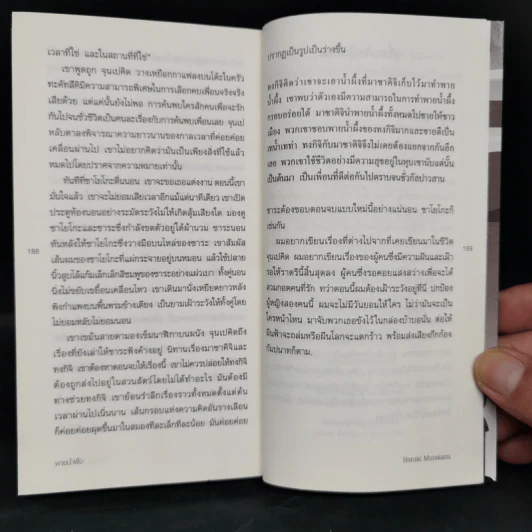 เวลาที่ใช่ และในสถานที่ที่ใช่"
เขาพูดถูก จุนเปคิด วางเหยือกกาแฟลงบนโต๊ะในครัว
ทะคัทสึคิมีความสามารถพิเศษในการเลือกคบเพื่อนจริงจริง
เสียด้วย แต่แค่นั้นยังไม่พอ การค้นพบใครสักคนเพื่อจะรัก
กันไปจนชั่วชีวิตเป็นคนละเรื่องกับการค้นพบเพื่อนเลย จุนเป
หลับตาลงพิจารณาความยาวนานของกาลเวลาที่ค่อยค่อย
เคลื่อนผ่านไป เขาไม่อยากคิดว่ามันเป็นเพียงสิ่งที่ใช้แล้ว
หมดไปโดยปราศจากความหมายเท่านั้น
ทันทีที่ซาโยโกะตื่นนอน เขาจะขอเธอแต่งงาน ตอนนี้เขา
มั่นใจแล้ว เขาจะไม่ยอมเสียเวลาอีกแม้แต่นาทีเดียว เขาเปิด
ประตูห้องนอนอย่างระมัดระวังไม่ให้เกิดสุ้มเสียงใด มองดู
ซาโยโกะและซาระซึ่งกำลังขดตัวอยู่ใต้ผ้านวม ซาระนอน
หันหลังให้ซาโยโกะซึ่งวางมือบนไหล่ของซาระ เขาสัมผัส
เส้นผมของซาโยโกะที่แผ่กระจายอยู่บนหมอน แล้วใช้ปลาย
นิ้วลูบไล้แก้มเล็กเล็กสีชมพูของซาระอย่างแผ่วเบา ทั้งคู่นอน
นิ่งไม่ขยับเขยื้อนเคลื่อนไหว เขาเดินมานั่งเหยียดยาวหลัง
พิงกำแพงบนพื้นพรมข้างเตียง เป็นยามเฝ้าระวังให้ทั้งคู่โดย
ไม่ยอมหลับไม่ยอมนอน
เขาเขม้นสายตามองเข็มนาฬิกาบนผนัง จุนเปคิดถึง
เรื่องที่ยังเล่าให้ซาระฟังค้างอยู่ นิทานเรื่องมาซาคิจิและ
ทงกิจิ เขาต้องหาตอนจบให้เรื่องนี้ เขาไม่ควรปล่อยให้ทงกิจิ
ต้องถูกส่งไปอยู่ในสวนสัตว์โดยไม่ได้ทำอะไร มันต้องมี
ทางช่วยทงกิจิ เขาย้อนรำลึกเรื่องราวทั้งหมดตั้งแต่ต้น
เวลาผ่านไปเนิ่นนาน เส้นกรอบแห่งความคิดอันรางเลือน
ก็ค่อยค่อยผุดขึ้นมาในสมองทีละเล็กทีละน้อย มันค่อยค่อย
188
พายน้ำผึ้ง
ปรากฏเป็นรูปเป็นร่างขึ้น
ทงกิจิคิดว่าเขาจะเอาน้ำผึ้งที่มาซาคิจิเก็บไว้มาทำพาย
น้ำผึ้ง เขาพบว่าตัวเองมีความสามารถในการทำพายน้ำผึ้ง
กรอบอร่อยได้ มาซาคิจินำพายน้ำผึ้งทั้งหมดไปขายให้ชาว
เมือง พวกเขาชอบพายน้ำผึ้งของทงกิจิมากและขายดีเป็น
เทน้ำเทท่า ทงกิจิกับมาซาคิจิจึงไม่เคยต้องแยกจากกันอีก
เลย พวกเขาใช้ชีวิตอย่างมีความสุขอยู่ในหุบเขานับแต่นั้น
เป็นต้นมา เป็นเพื่อนที่ดีต่อกันไปตราบจนชั่วกัลปาวสาน
ซาระต้องชอบตอนจบแบบใหม่นี้อย่างแน่นอน ซาโยโกะก็
เช่นกัน
ผมอยากเขียนเรื่องที่ต่างไปจากที่เคยเขียนมาในชีวิต
จุนเปคิด ผมอยากเขียนเรื่องของผู้คนซึ่งมีความฝันและเฝ้า
รอให้ราตรีนี้สิ้นสุดลง ผู้คนซึ่งรอคอยแสงสว่างเพื่อจะได้
สวมกอดคนที่รัก ทว่าตอนนี้ผมต้องเฝ้าระวังอยู่ที่นี่ ปกป้อง
ผู้หญิงสองคนนี้ ผมจะไม่มีวันยอมให้ใคร ไม่ว่ามันจะเป็น
ใครหน้าไหน มาจับพวกเธอขังไว้ในกล่องบ้าบอนั่น ต่อให้
ผืนฟ้าจะถล่มหรือผืนโลกจะแตกร้าว พร้อมส่งเสียงกึกก้อง
กัมปนาทก็ตาม
189
Haruki Murakami